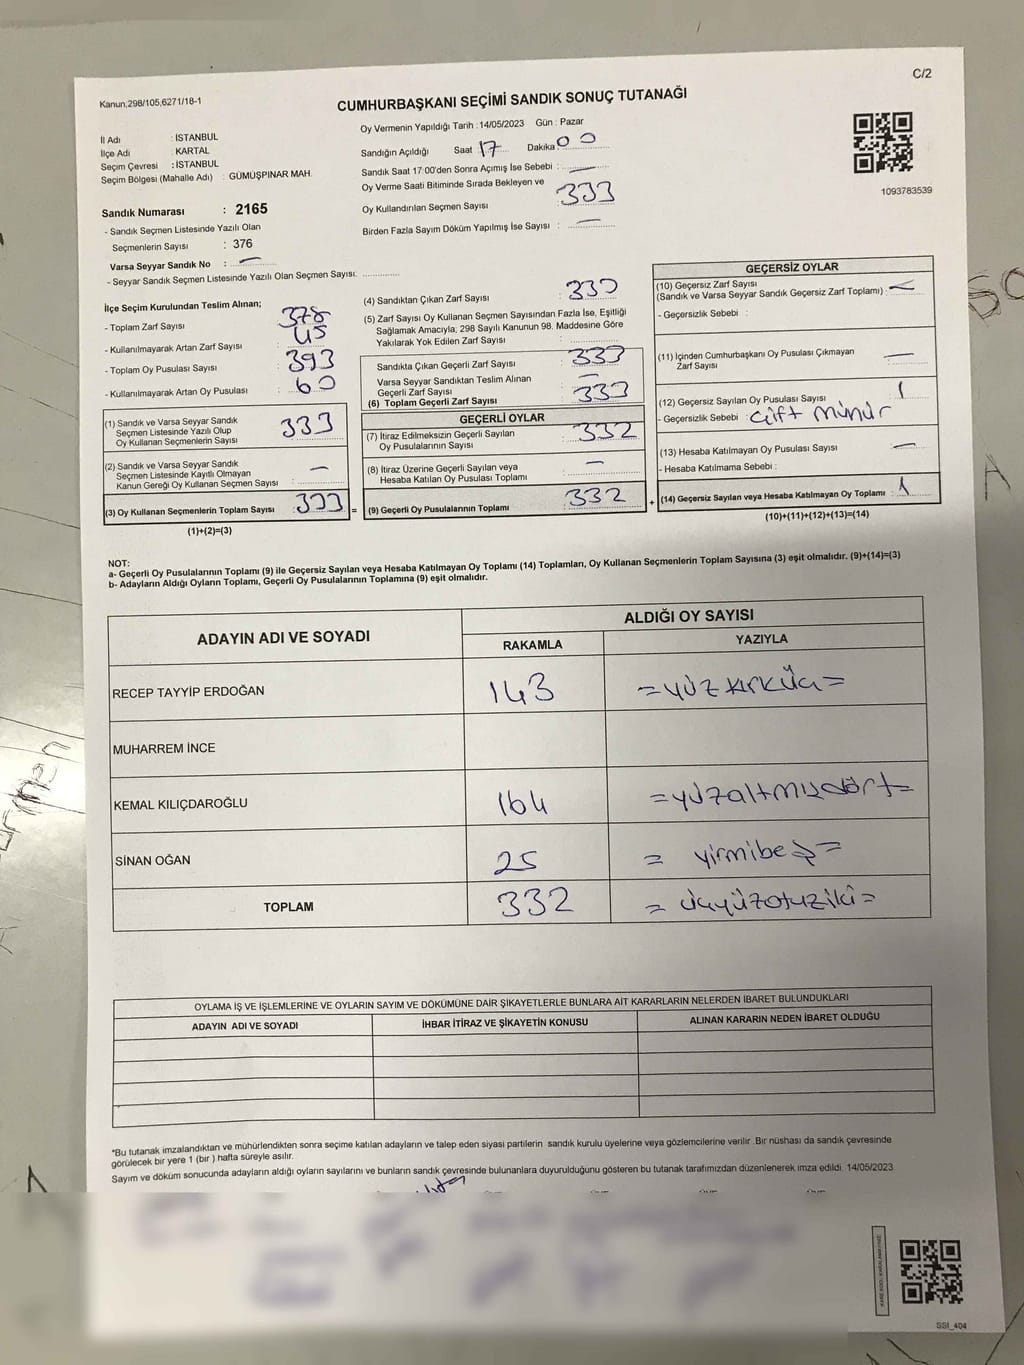 C/2
Kanun,298/105,6271/18-1
CUMHURBAŞKANI SEÇİMİ SANDIK SONUÇ TUTANAĞI
İl Adı : İSTANBUL
İlçe Adı : KARTAL
Seçim Çevresi : İSTANBUL
Seçim Bölgesi (Mahalle Adı) : GÜMÜŞPINAR MAH.
Sandık Numarası : 2165
- Sandık Seçmen Listesinde Yazılı Olan
Seçmenlerin Sayısı : 376
Varsa Seyyar Sandık No : —
- Seyyar Sandık Seçmen Listesinde Yazılı Olan Seçmen Sayısı:
Oy Vermenin Yapıldığı Tarih : 14/05/2023 Gün : Pazar
Sandığın Açıldığı Saat 17 Dakika : 00
Sandık Saat 17:00'den Sonra Açımış İse Sebebi : —
Oy Verme Saati Bitiminde Sırada Bekleyen ve
Oy Kullandırılan Seçmen Sayısı 333
Birden Fazla Sayım Döküm Yapılmış İse Sayısı : —
1093783539
İlçe Seçim Kurulundan Teslim Alınan;
- Toplam Zarf Sayısı : 378
- Kullanılmayarak Artan Zarf Sayısı : 45
- Toplam Oy Pusulası Sayısı : 393
- Kullanılmayarak Artan Oy Pusulası : 60
(1) Sandık ve Varsa Seyyar Sandık
Seçmen Listesinde Yazılı Olup
Oy Kullanan Seçmenlerin Sayısı 333
(2) Sandık ve Varsa Seyyar Sandık
Seçmen Listesinde Kayıtlı Olmayan
Kanun Gereği Oy Kullanan Seçmen Sayısı —
(3) Oy Kullanan Seçmenlerin Toplam Sayısı : 333
(1)+(2)=(3)
=
(4) Sandıktan Çıkan Zarf Sayısı : 333
(5) Zarf Sayısı Oy Kullanan Seçmen Sayısından Fazla İse, Eşitliği
Sağlamak Amacıyla; 298 Sayılı Kanunun 98. Maddesine Göre
Yakılarak Yok Edilen Zarf Sayısı :
Sandıkta Çıkan Geçerli Zarf Sayısı : 333
Varsa Seyyar Sandıktan Teslim Alınan
Geçerli Zarf Sayısı —
(6) Toplam Geçerli Zarf Sayısı : 333
GEÇERLİ OYLAR
(7) İtiraz Edilmeksizin Geçerli Sayılan
Oy Pusulalarının Sayısı : 332
(8) İtiraz Üzerine Geçerli Sayılan veya
Hesaba Katılan Oy Pusulası Toplamı —
(9) Geçerli Oy Pusulalarının Toplamı : 332
+
GEÇERSİZ OYLAR
(10) Geçersiz Zarf Sayısı
(Sandık ve Varsa Seyyar Sandık Geçersiz Zarf Toplamı) : —
- Geçersizlik Sebebi :
(11) İçinden Cumhurbaşkanı Oy Pusulası Çıkmayan
Zarf Sayısı —
(12) Geçersiz Sayılan Oy Pusulası Sayısı 1
- Geçersizlik Sebebi : Çift mühür
(13) Hesaba Katılmayan Oy Pusulası Sayısı —
- Hesaba Katılmama Sebebi :
(14) Geçersiz Sayılan veya Hesaba Katılmayan Oy Toplamı : 1
(10)+(11)+(12)+(13)=(14)
NOT:
a- Geçerli Oy Pusulalarının Toplamı (9) ile Geçersiz Sayılan veya Hesaba Katılmayan Oy Toplamı (14) Toplamları, Oy Kullanan Seçmenlerin Toplam Sayısına (3) eşit olmalıdır. (9)+(14)=(3)
b- Adayların Aldığı Oyların Toplamı, Geçerli Oy Pusulalarının Toplamına (9) eşit olmalıdır.
ADAYIN ADI VE SOYADI ALDIĞI OY SAYISI
RAKAMLA YAZIYLA
RECEP TAYYİP ERDOĞAN 143 =yüzkırküç=
MUHARREM İNCE
KEMAL KILIÇDAROĞLU 164 =yüzaltmışdört=
SİNAN OĞAN 25 = yirmibeş=
TOPLAM 332 = üçyüzotuziki=
OYLAMA İŞ VE İŞLEMLERİNE VE OYLARIN SAYIM VE DÖKÜMÜNE DAİR ŞİKAYETLERLE BUNLARA AİT KARARLARIN NELERDEN İBARET BULUNDUKLARI
ADAYIN ADI VE SOYADI İHBAR İTİRAZ VE ŞİKAYETİN KONUSU ALINAN KARARIN NEDEN İBARET OLDUĞU
*Bu tutanak imzalandıktan ve mühürlendikten sonra seçime katılan adayların ve talep eden siyasi partilerin sandık kurulu üyelerine veya gözlemcilerine verilir .Bir nüshası da sandık çevresinde
görülecek bir yere 1 (bir ) hafta süreyle asılır.
Sayım ve döküm sonucunda adayların aldığı oyların sayılarını ve bunların sandık çevresinde bulunanlara duyurulduğunu gösteren bu tutanak tarafımızdan düzenlenerek imza edildi. 14/05/2023
SSI_404